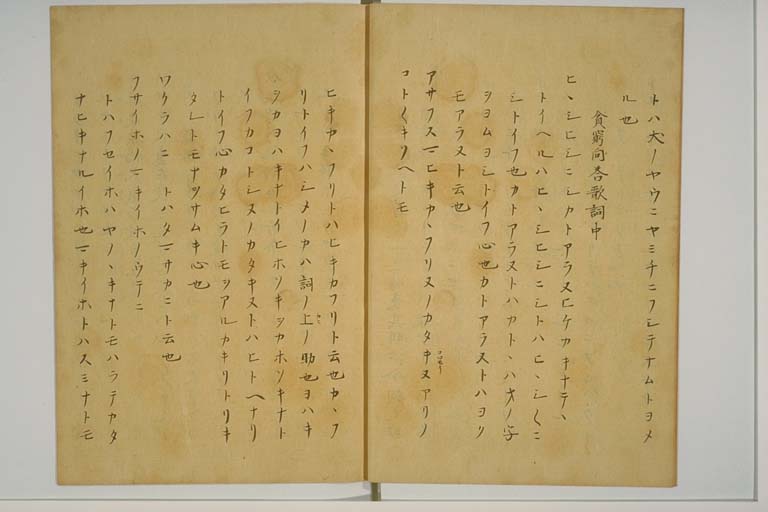 トハ犬ノヤウニヤミチニフシテナムトヨメ
ル也
貧窮問答歌詞中
ヒヽシヒシニシカトアラヌヒケカキナテヽ
トイヘルハヒヽシヒシニシトハヒヽシ〱ニ
シトイフ也カトアラストハカトヽハ才ノ字
ヲヨムヨシトイフ心也カトアラストハヨク
モアラヌト云也
アサフスマヒキカヽフリヌノカタキヌアリノ
コト〱キソヘトモ
ヒキカヽフリトハヒキカフリト云也カヽフ
リトイフハシメノカハ詞ノ上ノ助也ヨハキ
ヲカヨハキナトイヒホソキヲカホソキナト
イフカコトシヌノカタキヌトハヒトヘナリ
トイフ心カタヒラトモヲアルカキリトリキ
タレトモナヲサムキ心也
ワクラハニトハタマサカニト云也
フサイホノマキイホノウチニ
トハフセイホハヤノヽキナトモハラテカタ
ナヒキナルイホ也マキイホトハスミナトモ